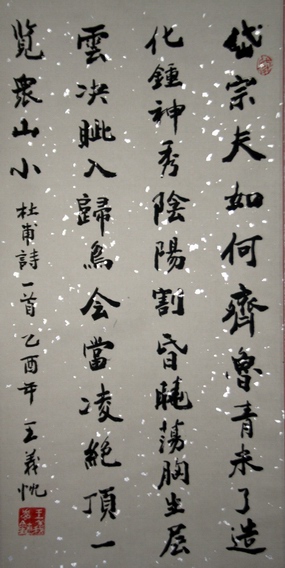 岱宗夫如何齊魯青未了造
化鍾神秀陰陽割昏曉蕩胸生层
雲决眦入歸鳥会當凌絶頂一
览衆山小
杜甫詩一首 乙酉年 王義忱